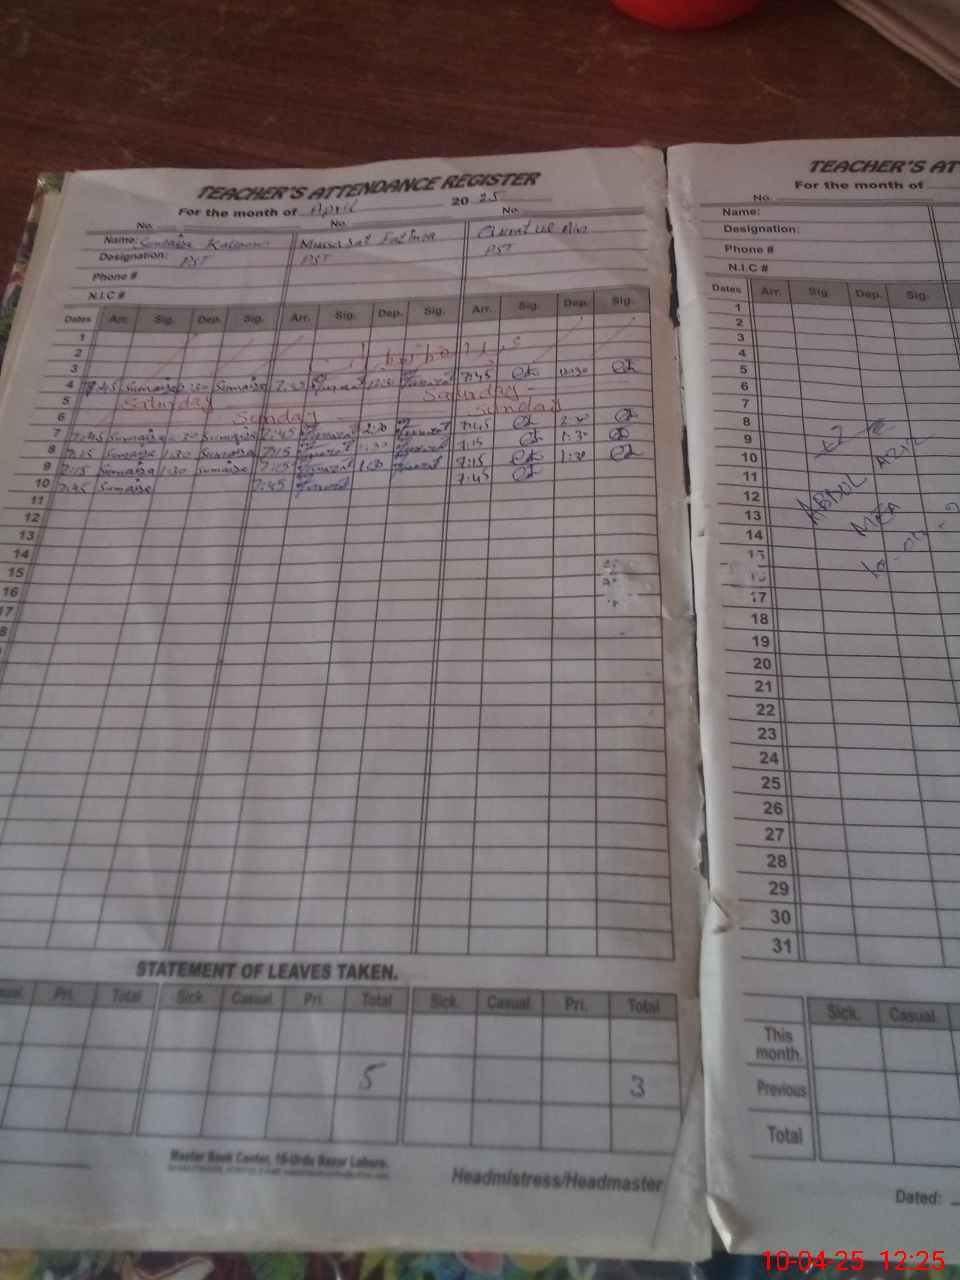 TEACHER'S ATTENDANCE REGISTER
For the month of April 20 25
No. No. No.
Name: Kalsoom Fatima
Designation: PST PST PST
Phone #
N.I.C #
Dates Arr. Sig. Dep. Sig. Arr. Sig. Dep. Sig. Arr. Sig. Dep. Sig.
1
2
3
4 7:45 Sumaira Sumaira 7:45
5 Saturday Saturday
6 Sunday Sunday
7 7:45 Sumaira Sumaira 7:45 7:45
8 7:15 Sumaira 1:30 Sumaira 7:15 1:30 7:15 1:30
9 7:15 Sumaira 1:30 Sumaira 7:15 1:30 7:15 1:30
10 7:45 Sumaira 7:45 7:45
11
12
13
14
15
16
17
8
STATEMENT OF LEAVES TAKEN.
Pri. Total Sick. Casual. Pri. Total Sick. Casual. Pri. Total
5 3
Master Book Center, 10-Urdu Bazar Lahore.
Headmistress/Headmaster
TEACHER'S AT
For the month of
No.
Name:
Designation:
Phone #
N.I.C #
Dates Arr. Sig. Dep. Sig.
1
2
3
4
5
6
7
8
9
10
11
12
13
14
15
16
17
18
19
20
21
22
23
24
25
26
27
28
29
30
31
ABDUL AZIZ
MEA
Sick. Casual.
This month.
Previous
Total
Dated:
10-04-25 12:25